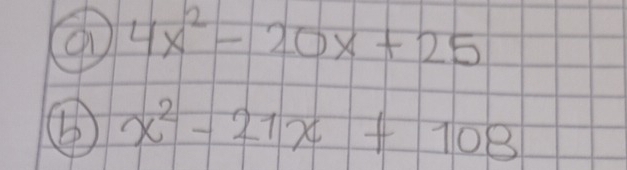 ⓐ 4x² - 20x + 25
ⓑ x² - 21x + 108